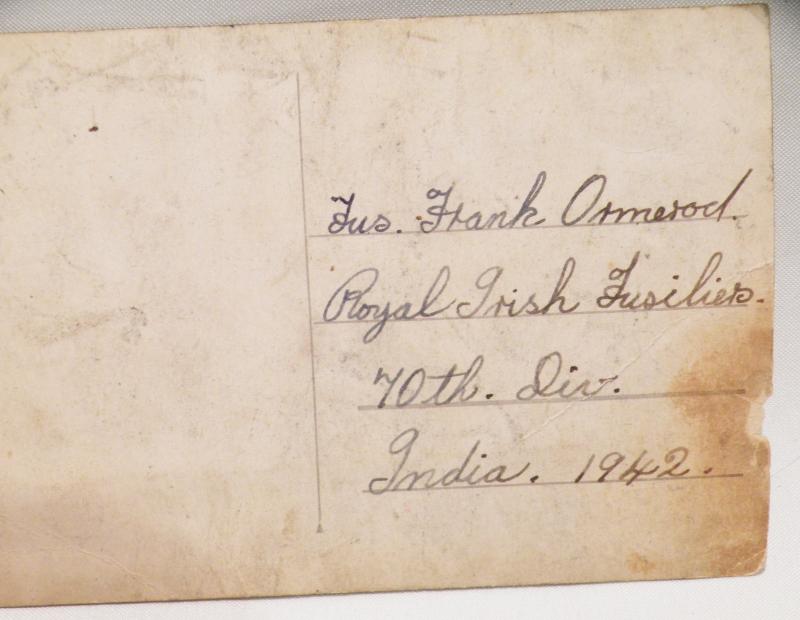 Fus. Frank Ormerod.
Royal Irish Fusiliers.
70th. Div.
India. 1942.